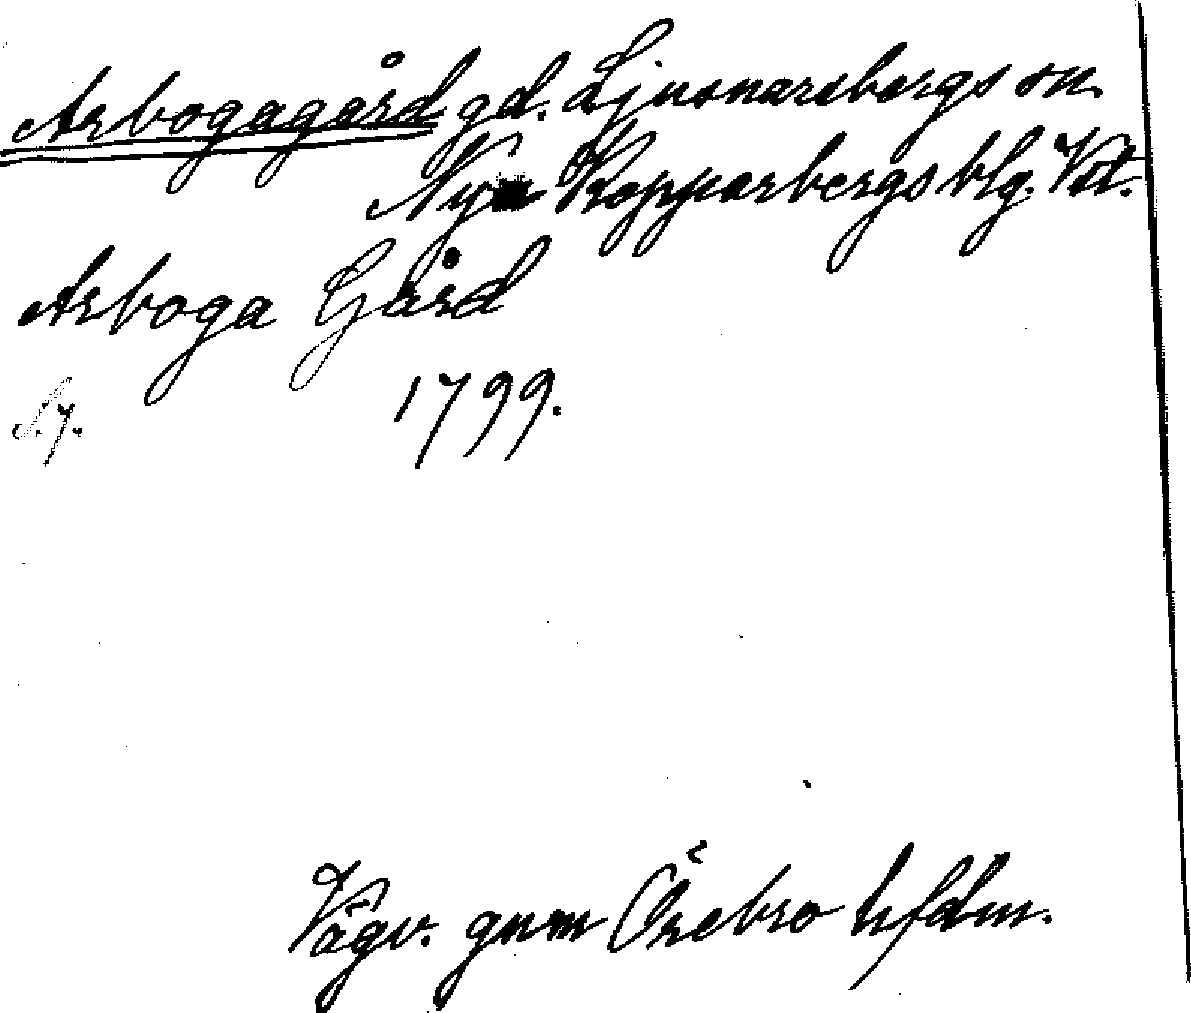 Arbogagård gd. Ljusnarsbergs sn.
Nya Kopparbergs blg. Vstm.
Arboga Gård
S. 7. 1799.
Vägv. gnm Örebro hfdm.